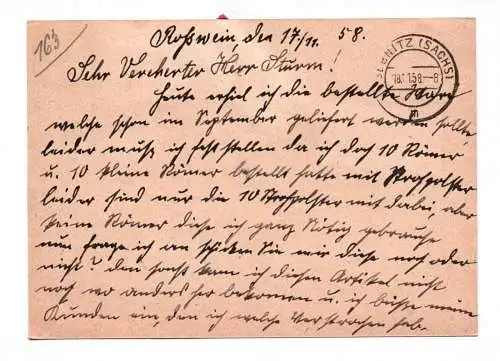 163
Roßwein, den 17/11. 58.
SEBNITZ (SACHS)
18.11.58.-8
m
Sehr Verehrter Herr Sturm!
Heute erhiel ich die bestellte Ware
welche schon im September geliefert werden sollte
leider muß ich feststellen da ich doch 10 Römer
u. 10 kleine Römer bestellt hatte mit Strohpolster
leider sind nur die 10 Strohpolster mit dabei, aber
keine Römer diese ich ganz Nötig gebrauche
nun frage ich an schicken Sie mir diese noch oder
nicht? den sonst kann ich diesen Artikel nicht
noch wo anders her bekommen u. ich büße meine
Kunden ein, den ich welche Versprochen hab.